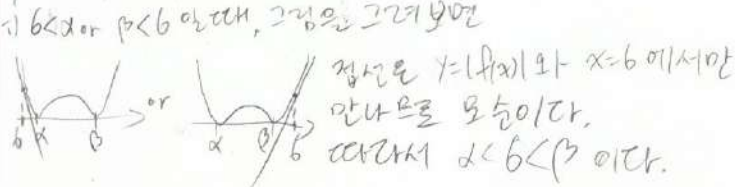 i) 6<α or β<6 일 때, 그림을 그려보면
6 α β or α β 6
접선은 y=|f(x)| 와 x=6 에서만
만나므로 모순이다.
따라서 α<6<β 이다.